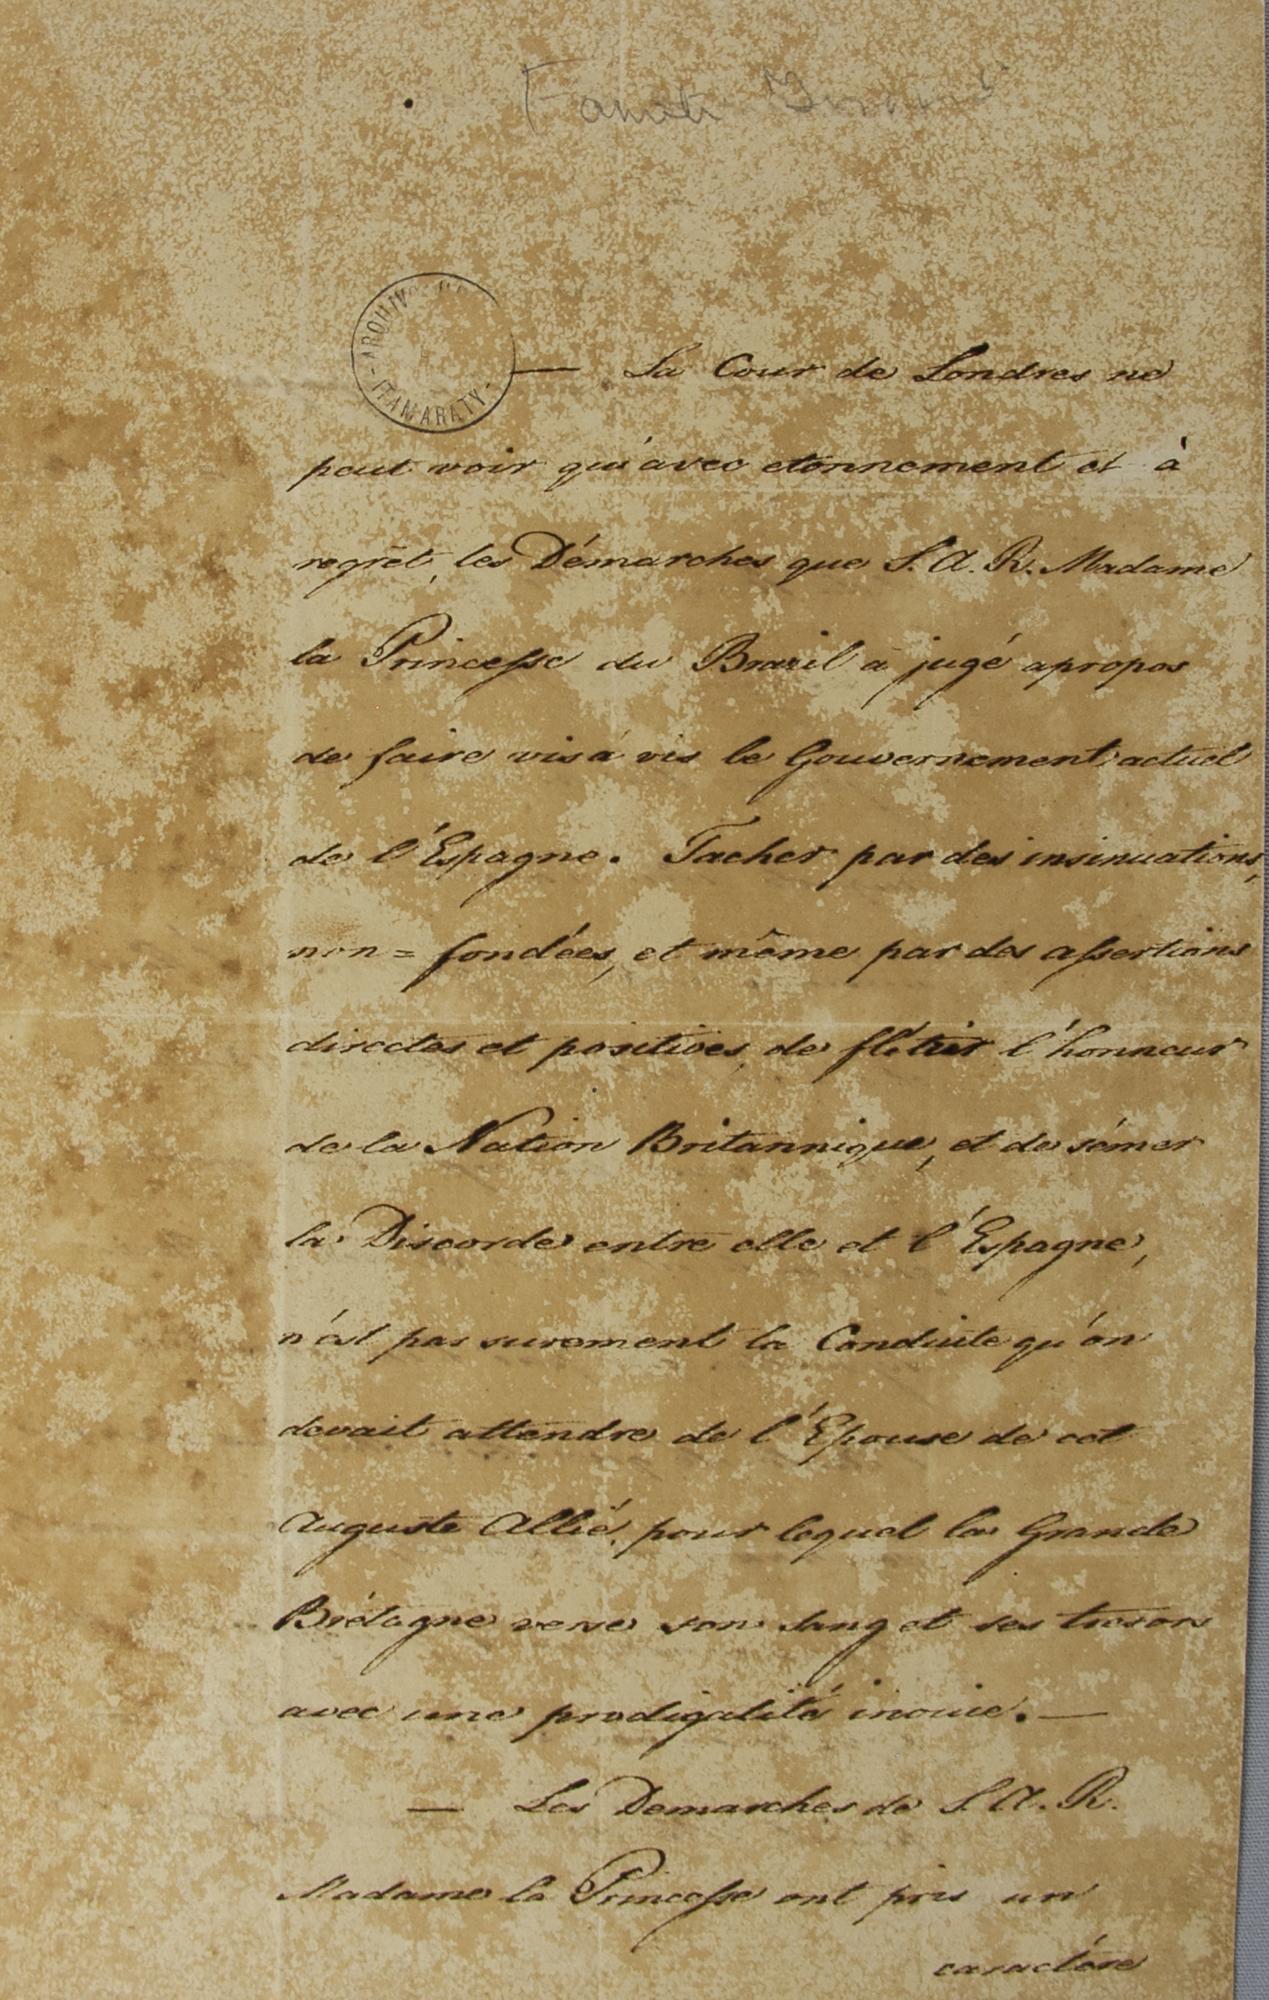 ARQUIVO
ITAMARATY
— La Cour de Londres ne
peut voir qu'avec etonnement et à
regrêt, les Démarches que S. A. R. Madame
la Princesse du Brazil a jugé apropos
de faire vis à vis le Gouvernement actuel
de l'Espagne. Tacher par des insinuations,
non = fondées, et même par des assertions
directes et positives, de flétrir l'honneur
de la Nation Britannique, et de sémer
la Discorde entre elle et l'Espagne,
n'est pas surement la Conduite qu'on
devait attendre de l'Epouse de cet
Auguste Allié, pour lequel la Grande
Brétagne verse son sang et ses tresors
avec une prodigalité inouie. —
— Les Demarches de S. A. R.
Madame la Princesse ont pris un
caractére